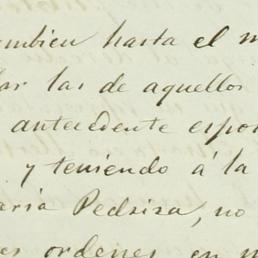 ambien hasta el m
lar las de aquellos
antecedente espo
y teniendo á la
aria Pedriza, no
es ordenes en m